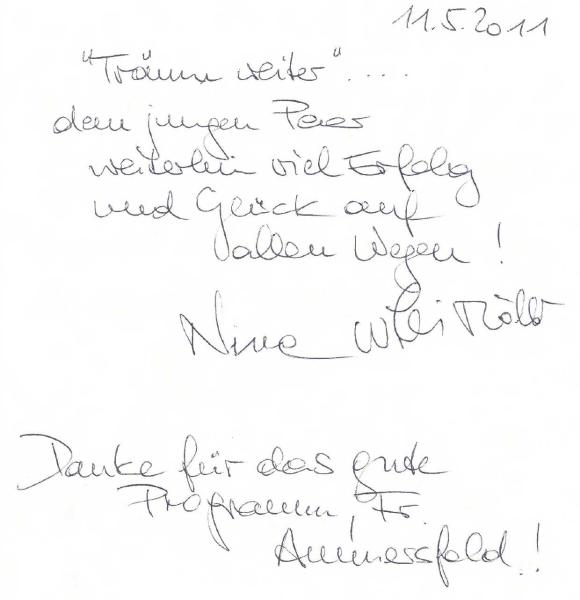 11.5.2011
"Träum weiter"....
dem jungen Paar
weiterhin viel Erfolg
und Glück auf
allen Wegen!
Nina
Danke für das gute
Programm, Fr.
Ammersfeld!